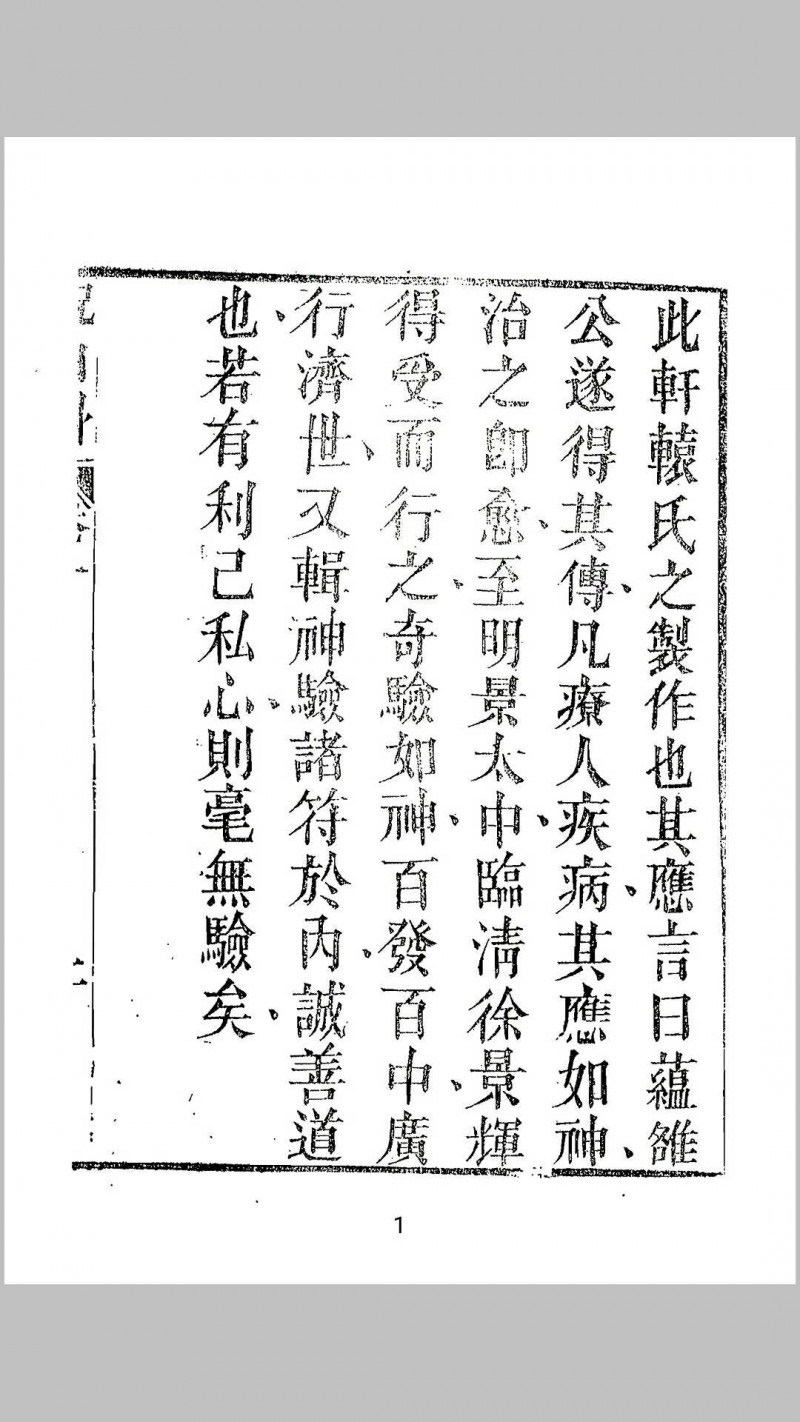 此軒轅氏之製作也其應言曰蘊雒
公遂得其傳、凡療人疾病、其應如神、
治之即愈、至明景太中、臨清徐景輝
得受而行之、奇驗如神、百發百中、廣
行濟世、又輯神驗諸符於內、誠善道
也、若有利己私心、則毫無驗矣、
祝由科
1